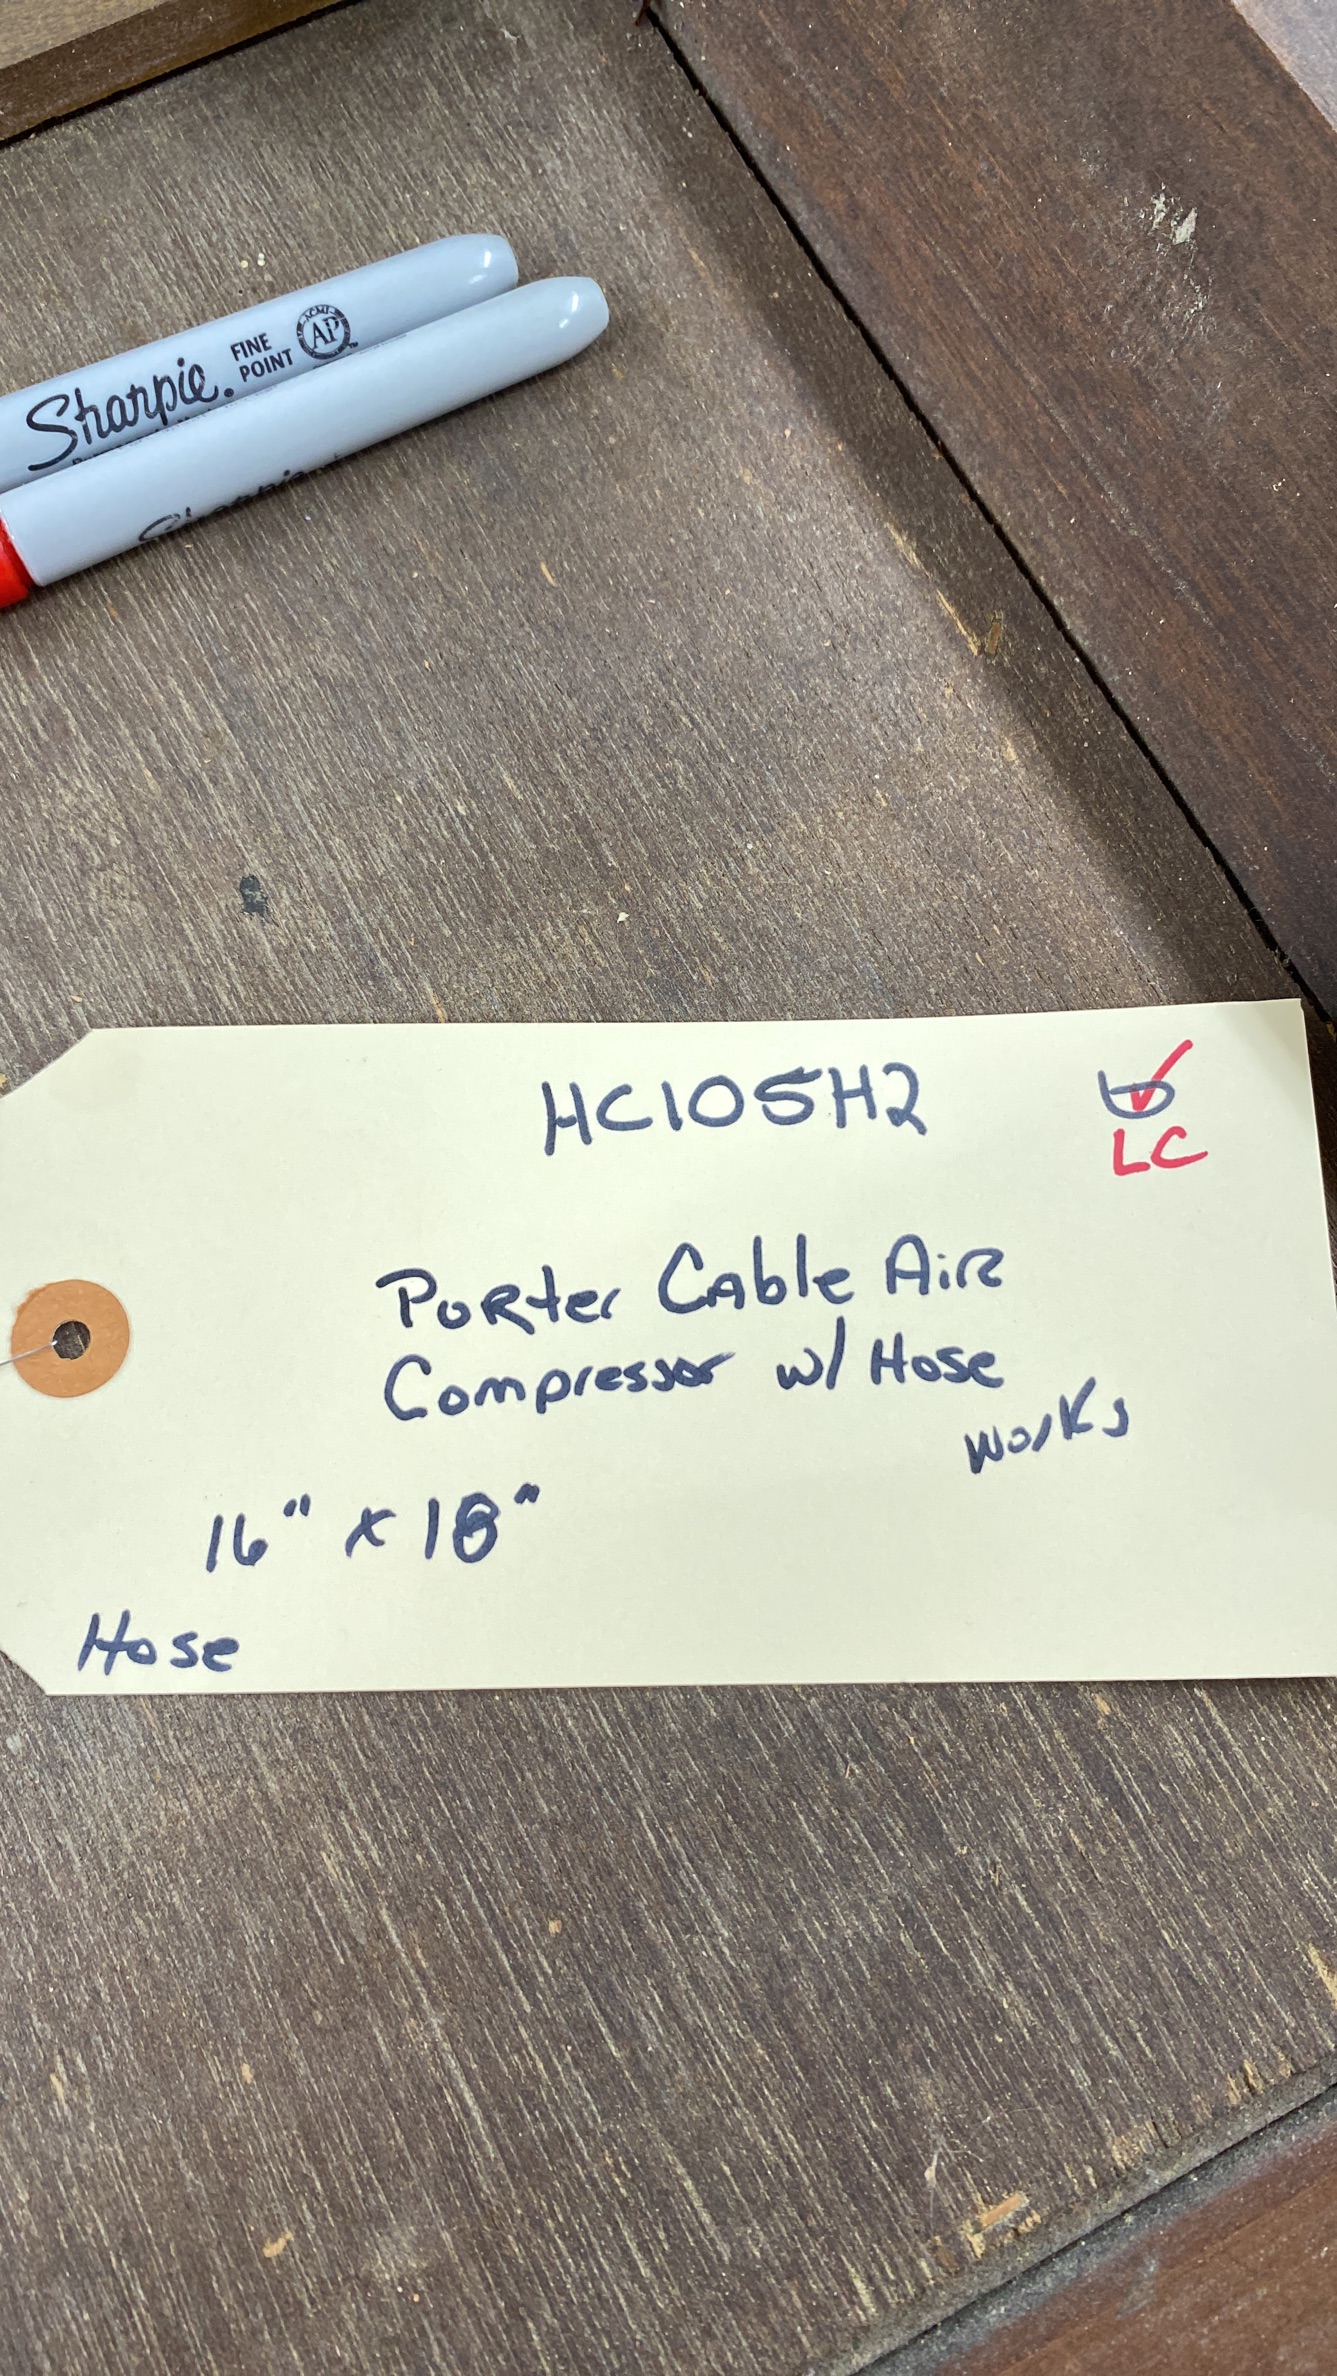 Sharpie.
FINE
POINT
ACMI
AP
Sharpie
HC105H2
LC
Porter Cable Air
Compressor w/ Hose
works
16" x 18"
Hose